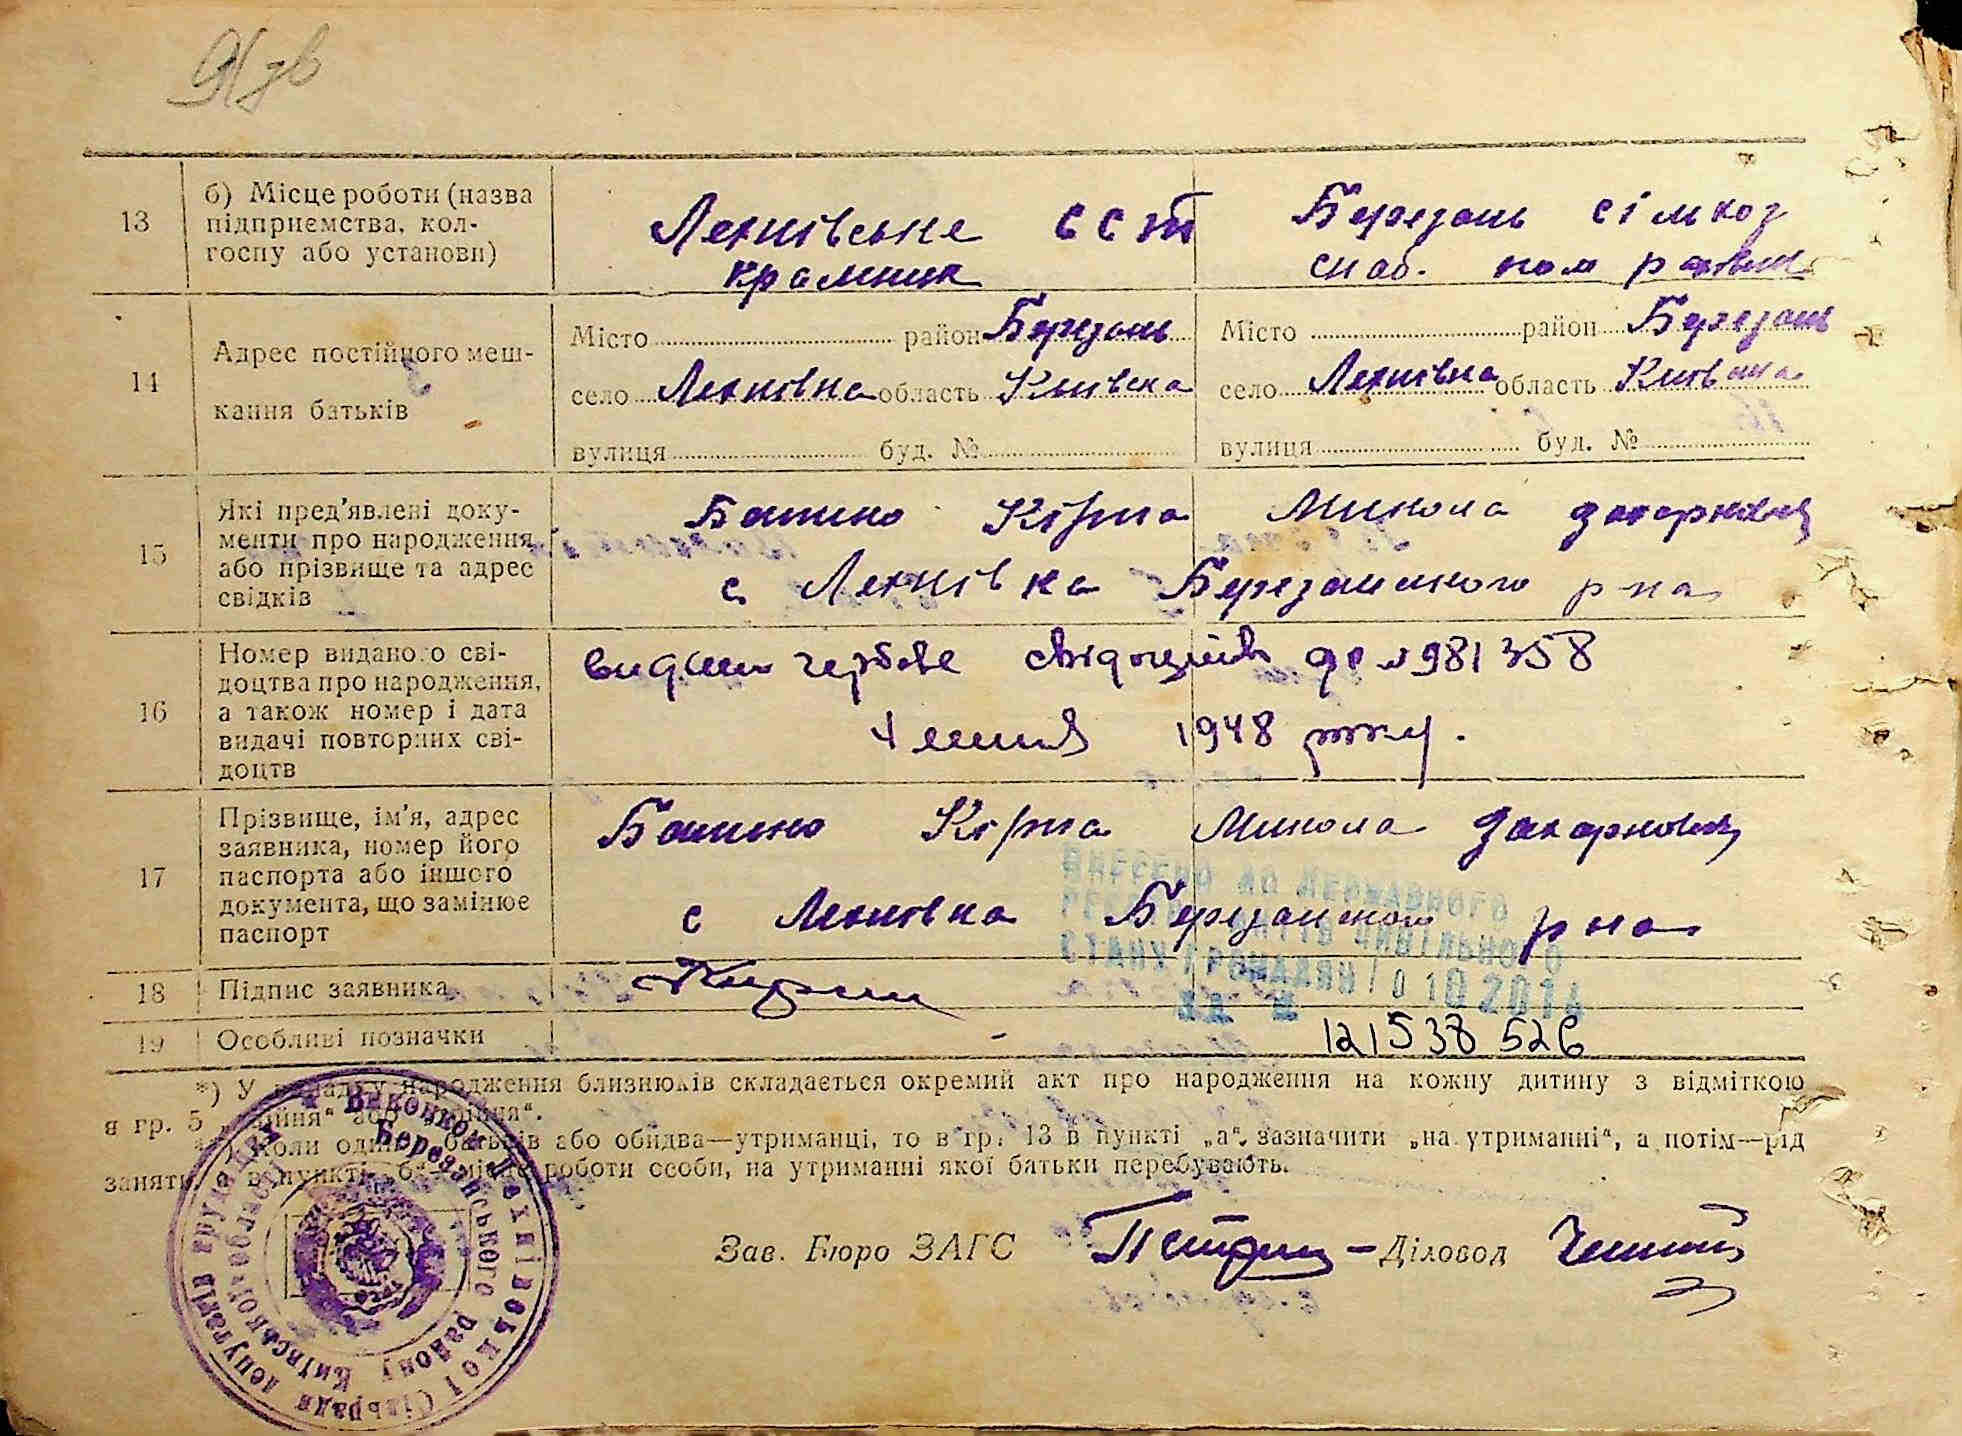 91 зв
13
б) Місце роботи (назва
підприємства, кол-
госпу або установи)
Лехнівське ССТ
крамник
Березань сільхоз
снаб.
14
Адрес постійного меш-
кання батьків
Місто район Березань
село Лехнівка область Київска
вулиця буд. №
Місто район Березань
село Лехнівка область Київска
вулиця буд. №
15
Які пред'явлені доку-
менти про народження
або прізвище та адрес
свідків
Батько Кірпа Микола Захаркович
с Лехнівка Березанського р-на
16
Номер виданого сві-
доцтва про народження,
а також номер і дата
видачі повторних сві-
доцтв
видано гербове свідоцтво № 981358
4 1948 року.
17
Прізвище, ім'я, адрес
заявника, номер його
паспорта або іншого
документа, що замінює
паспорт
Батько Кірпа Микола Захаркович
с Лехнівка Березанського р на
ВНЕСЕНО ДО ДЕРЖАВНОГО
РЕЄСТРУ АКТІВ ЦИВІЛЬНОГО
СТАНУ ГРОМАДЯН 10 10 2014
ЗА №
121538526
18
Підпис заявника
19
Особливі позначки
-
*) У випадку народження близнюків складається окремий акт про народження на кожну дитину з відміткою
в гр. 5 „двійня“ або „трійня“.
**) Коли один з батьків або обидва—утриманці, то в гр. 13 в пункті „а“ зазначити „на утриманні“, а потім—рід
занять, а в пункті „б“—місце роботи особи, на утриманні якої батьки перебувають.
Зав. Бюро ЗАГС Діловод
Виконком Лехнівської Сільради депутатів трудящих
Березанського району Київської області